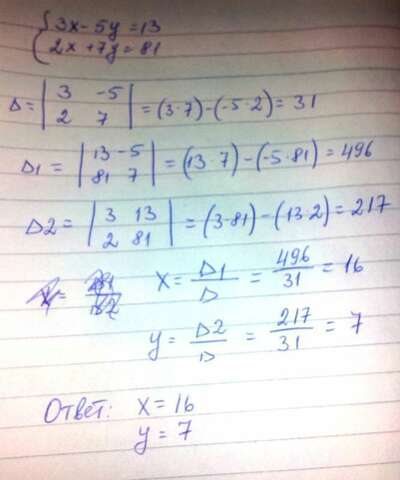 { 3x - 5y = 13
2x + 7y = 81
Δ = | 3 -5 | = (3·7) - (-5·2) = 31
| 2 7 |
Δ1 = | 13 -5 | = (13·7) - (-5·81) = 496
| 81 7 |
Δ2 = | 3 13 | = (3·81) - (13·2) = 217
| 2 81 |
x = Δ1/Δ = 496/31 = 16
y = Δ2/Δ = 217/31 = 7
Ответ: x = 16
y = 7